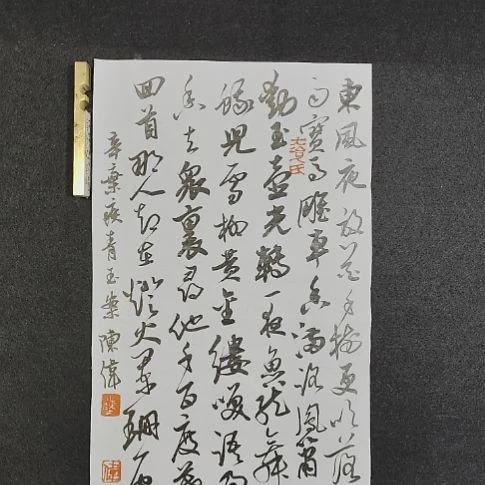 東風夜放花千樹更吹落
雨寶馬雕車香滿路鳳簫
動玉壺光轉一夜魚龍舞
蛾兒雪柳黄金縷笑語盈
香去衆裏尋他千百度驀
回首那人却在燈火闌珊處
辛棄疾青玉案 陳偉